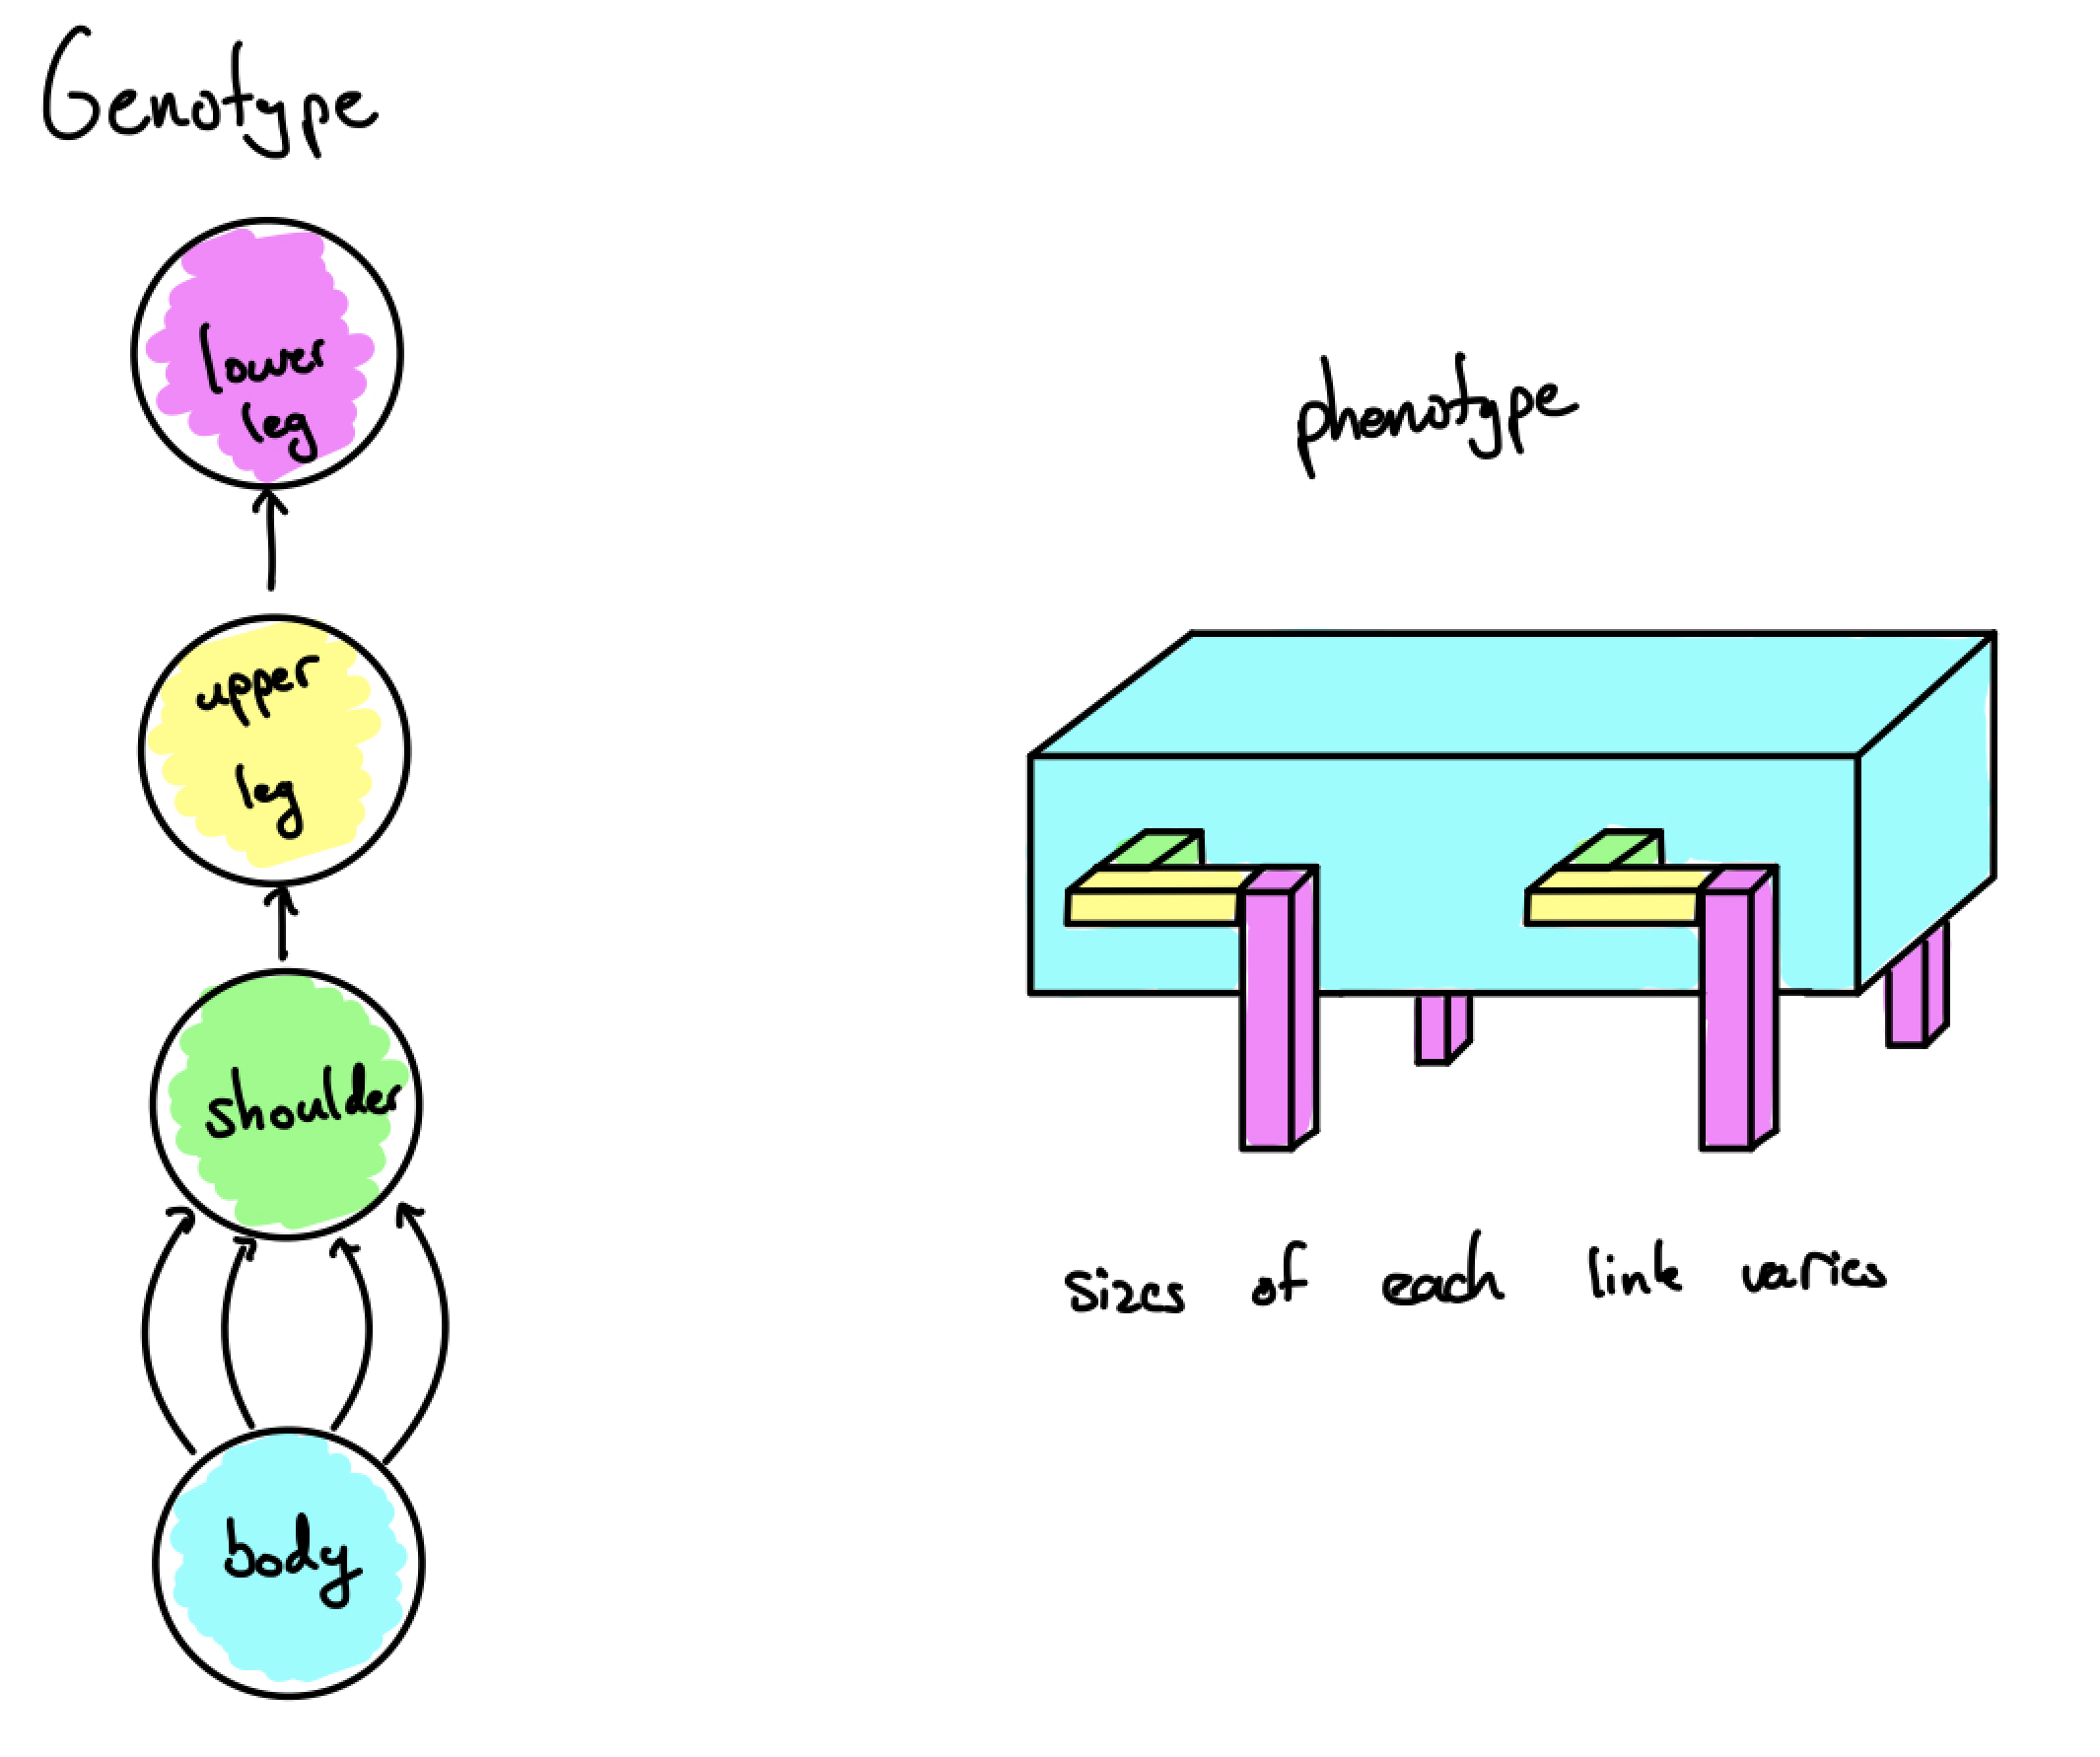 Genotype
lower
leg
upper
leg
shoulder
body
phenotype
sizes of each link varies